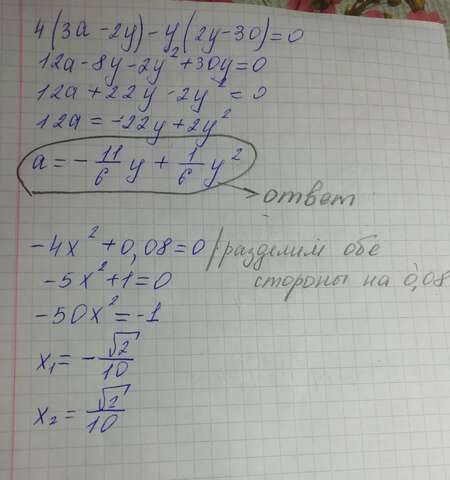 4(3a-2y)-y(2y-30)=0
12a-8y-2y²+30y=0
12a+22y-2y²=0
12a=-22y+2y²
a=-11/6 y+1/6 y²
ответ
-4x²+0,08=0 /разделим обе
стороны на 0,08
-5x²+1=0
-50x²=-1
x₁=-√2/10
x₂=√2/10